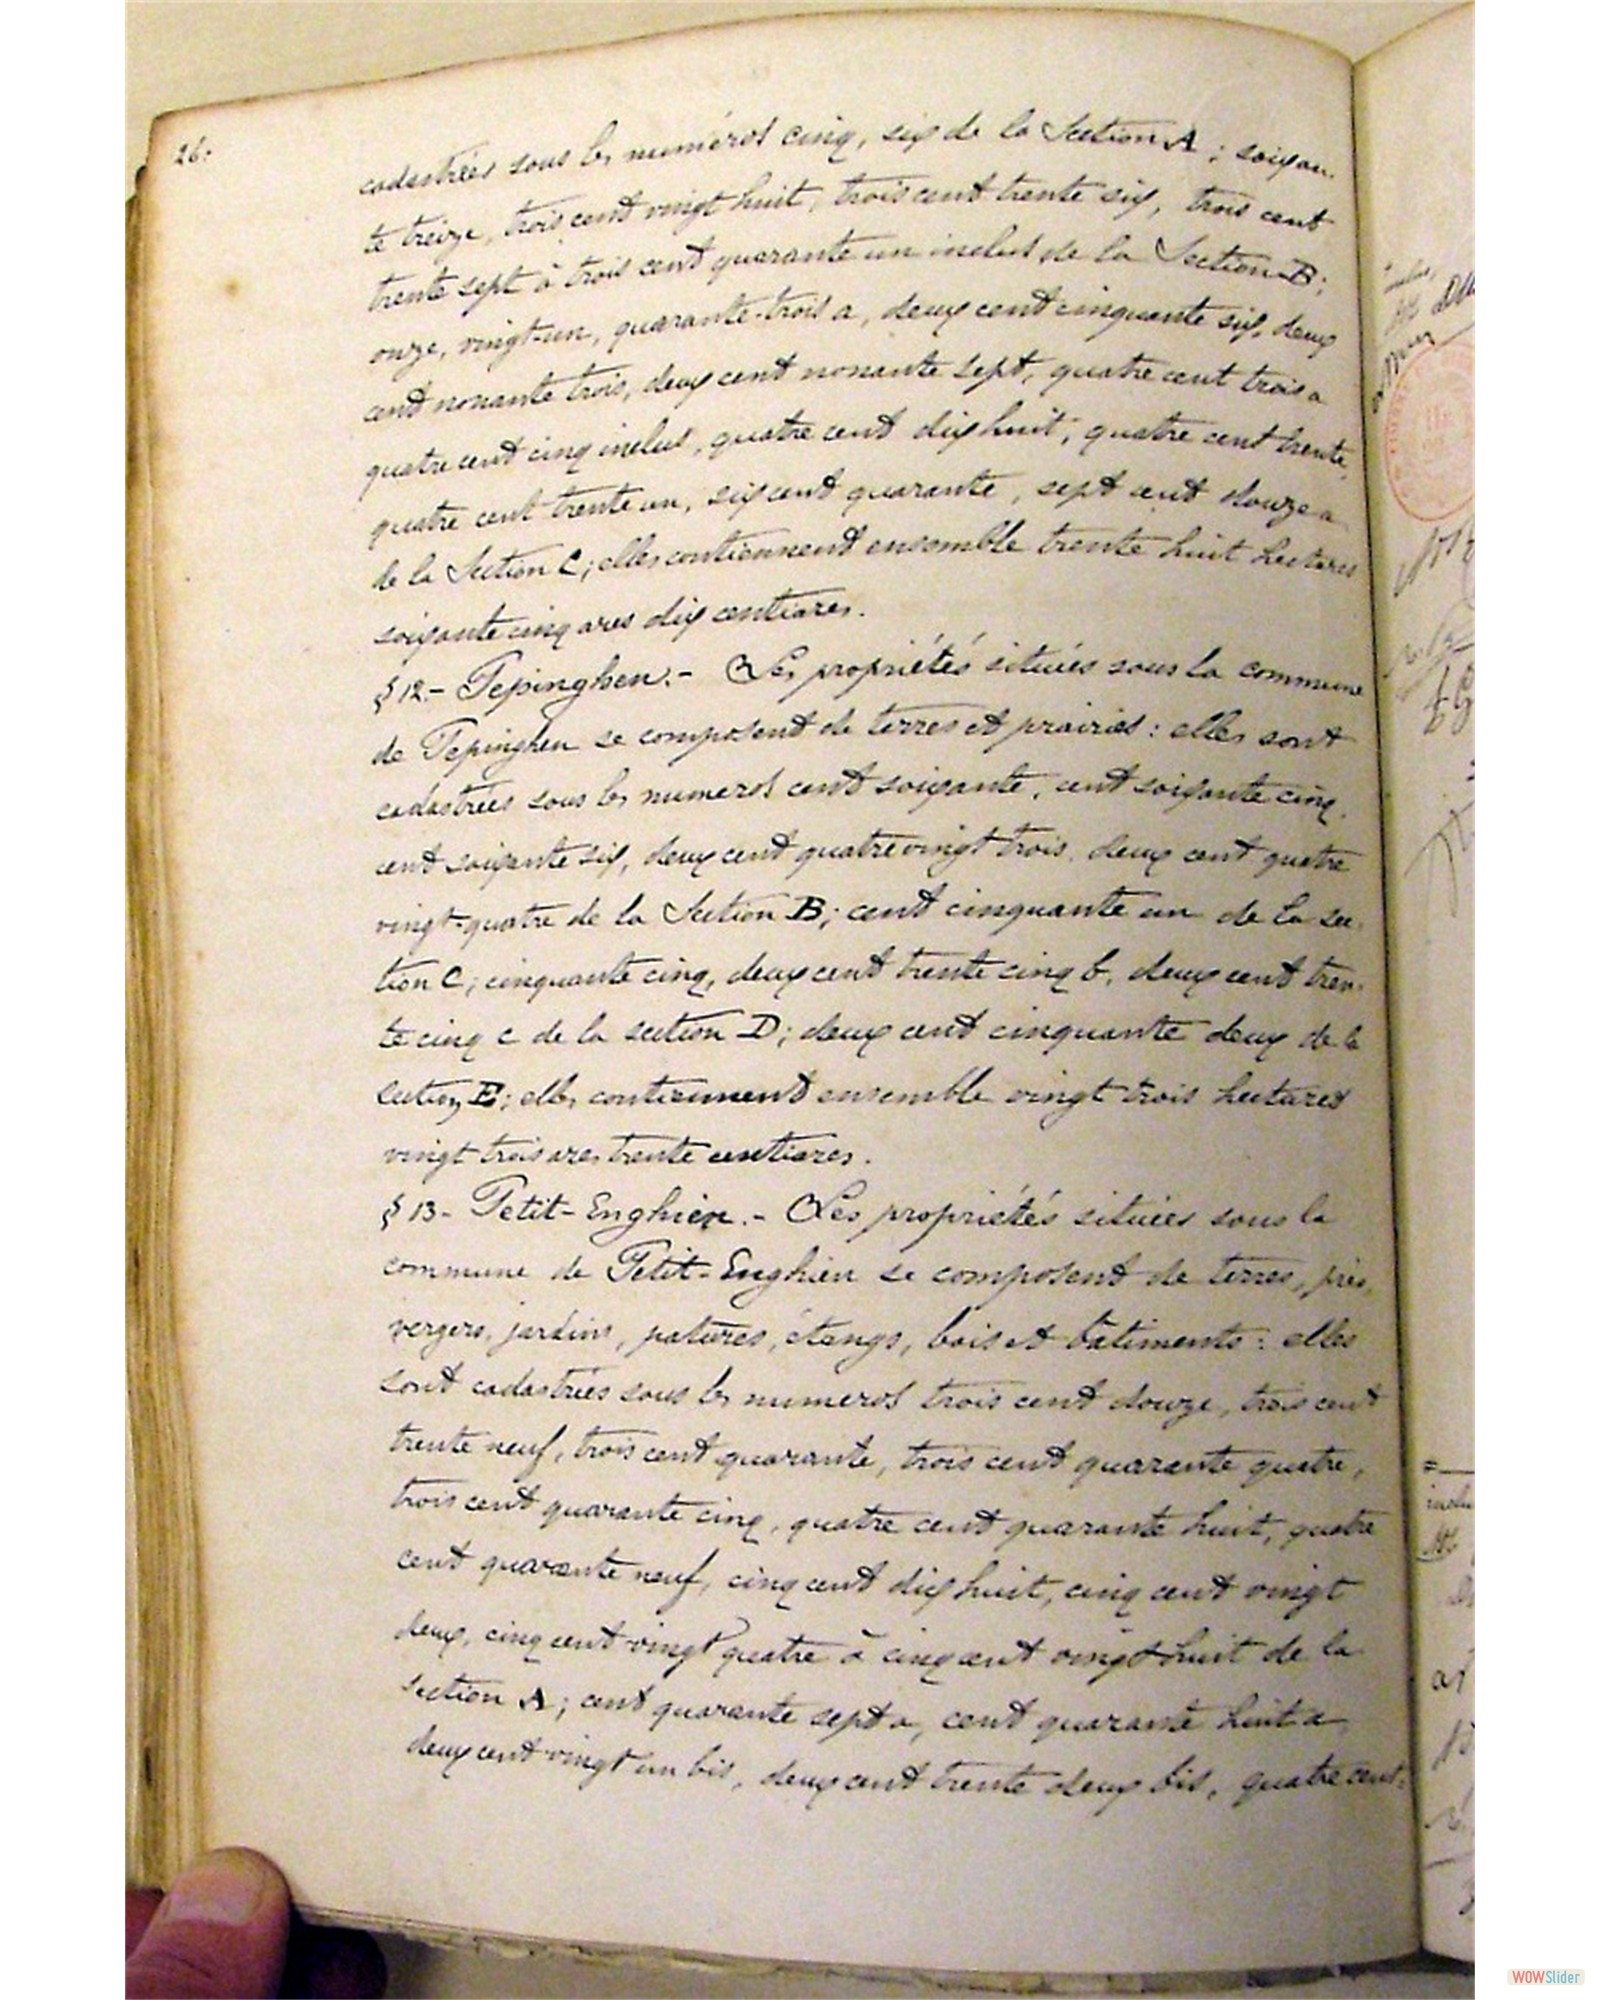 26.
cadastrées sous les numéros cinq, six de la Section A ; soixan-
te treize, trois cent vingt huit, trois cent trente six, trois cent
trente sept à trois cent quarante un inclus de la Section B ;
onze, vingt-un, quarante-trois a, deux cent cinquante six, deux
cent nonante trois, deux cent nonante sept, quatre cent trois a
quatre cent cinq inclus, quatre cent dix huit, quatre cent trente,
quatre cent trente un, six cent quarante, sept cent douze a
de la Section C ; elles contiennent ensemble trente huit hectares
soixante cinq ares dix centiares.
§ 12.- Pepinghen.- Les propriétés situées sous la commune
de Pepinghen se composent de terres et prairies : elles sont
cadastrées sous les numeros cent soixante, cent soixante cinq,
cent soixante six, deux cent quatre vingt trois, deux cent quatre
vingt-quatre de la Section B ; cent cinquante un de la sec-
tion C ; cinquante cinq, deux cent trente cinq b, deux cent tren-
te cinq c de la section D ; deux cent cinquante deux de la
section E ; elles contiennent ensemble vingt trois hectares
vingt trois ares trente centiares.
§ 13- Petit-Enghien.- Les propriétés situées sous la
commune de Petit-Enghien se composent de terres, prés,
vergers, jardins, patures, étangs, bois et bâtiments : elles
sont cadastrées sous les numeros trois cent douze, trois cent
trente neuf, trois cent quarante, trois cent quarante quatre,
trois cent quarante cinq, quatre cent quarante huit, quatre
cent quarante neuf, cinq cent dix huit, cinq cent vingt
deux, cinq cent vingt quatre à cinq cent vingt-huit de la
section A ; cent quarante sept a, cent quarante huit a,
deux cent vingt un bis, deux cent trente deux bis, quatre cent-
WOWSlider